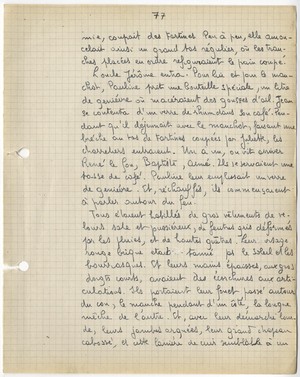 77
mie, coupait des tartines. Peu à peu, elle amon-
celait ainsi un grand tas régulier, où les tran-
ches placées en ordre refiguraient le pain coupé.
L'oncle Jérôme entra. Pour lui et pour le man-
chot, Pauline prit une bouteille spéciale, un litre
de genièvre où macéraient des gousses d'ail. Jean
se contenta d'un verre de rhum dans son café. Pen-
dant qu'il déjeunait avec le manchot, faisant une
brèche au tas de tartines coupées par , les
charretiers entraient. Un à un, on vit arriver
René le fou, Baptiste, Aimé. Ils se versaient une
tasse de café. Pauline leur emplissait un verre
de genièvre. Et, réchauffés, ils commençaient
à parler autour du feu.
Tous étaient habillés de gros vêtements de ve-
lours sale et poussiéreux, de feutres gris déformés
par les pluies, et de hautes guêtres. Leur visage
rouge brique était tanné par le soleil et les
bourrasques. Et leurs mains épaisses, aux gros
doigts courts, avaient des crevasses aux arti-
culations. Ils portaient leur fouet passé autour
du cou, le manche pendant d'un côté, la longue
mèche de l'autre. Et, avec leur démarche lour-
de, leurs jambes arquées, leur grand chapeau
cabossé, et cette lanière de cuir semblable à un